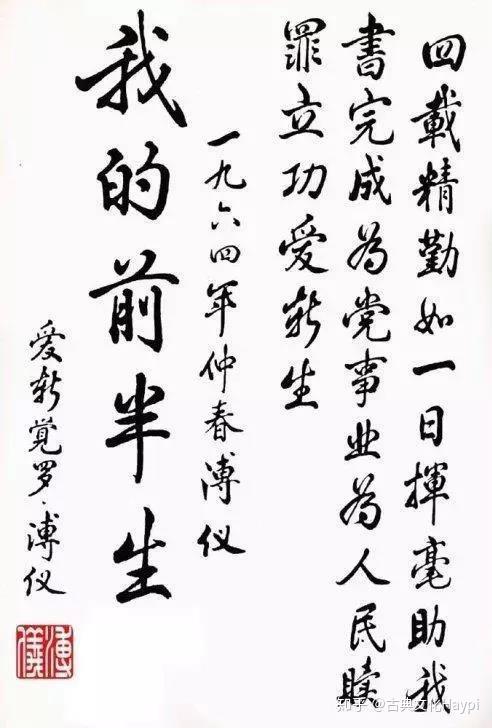 四載精勤如一日揮毫助我
書完成為党事业為人民赎
罪立功爱新生
一九六四年仲春溥仪
我的前半生
爱新觉罗·溥仪
溥儀
知乎 @古典文化Haypi